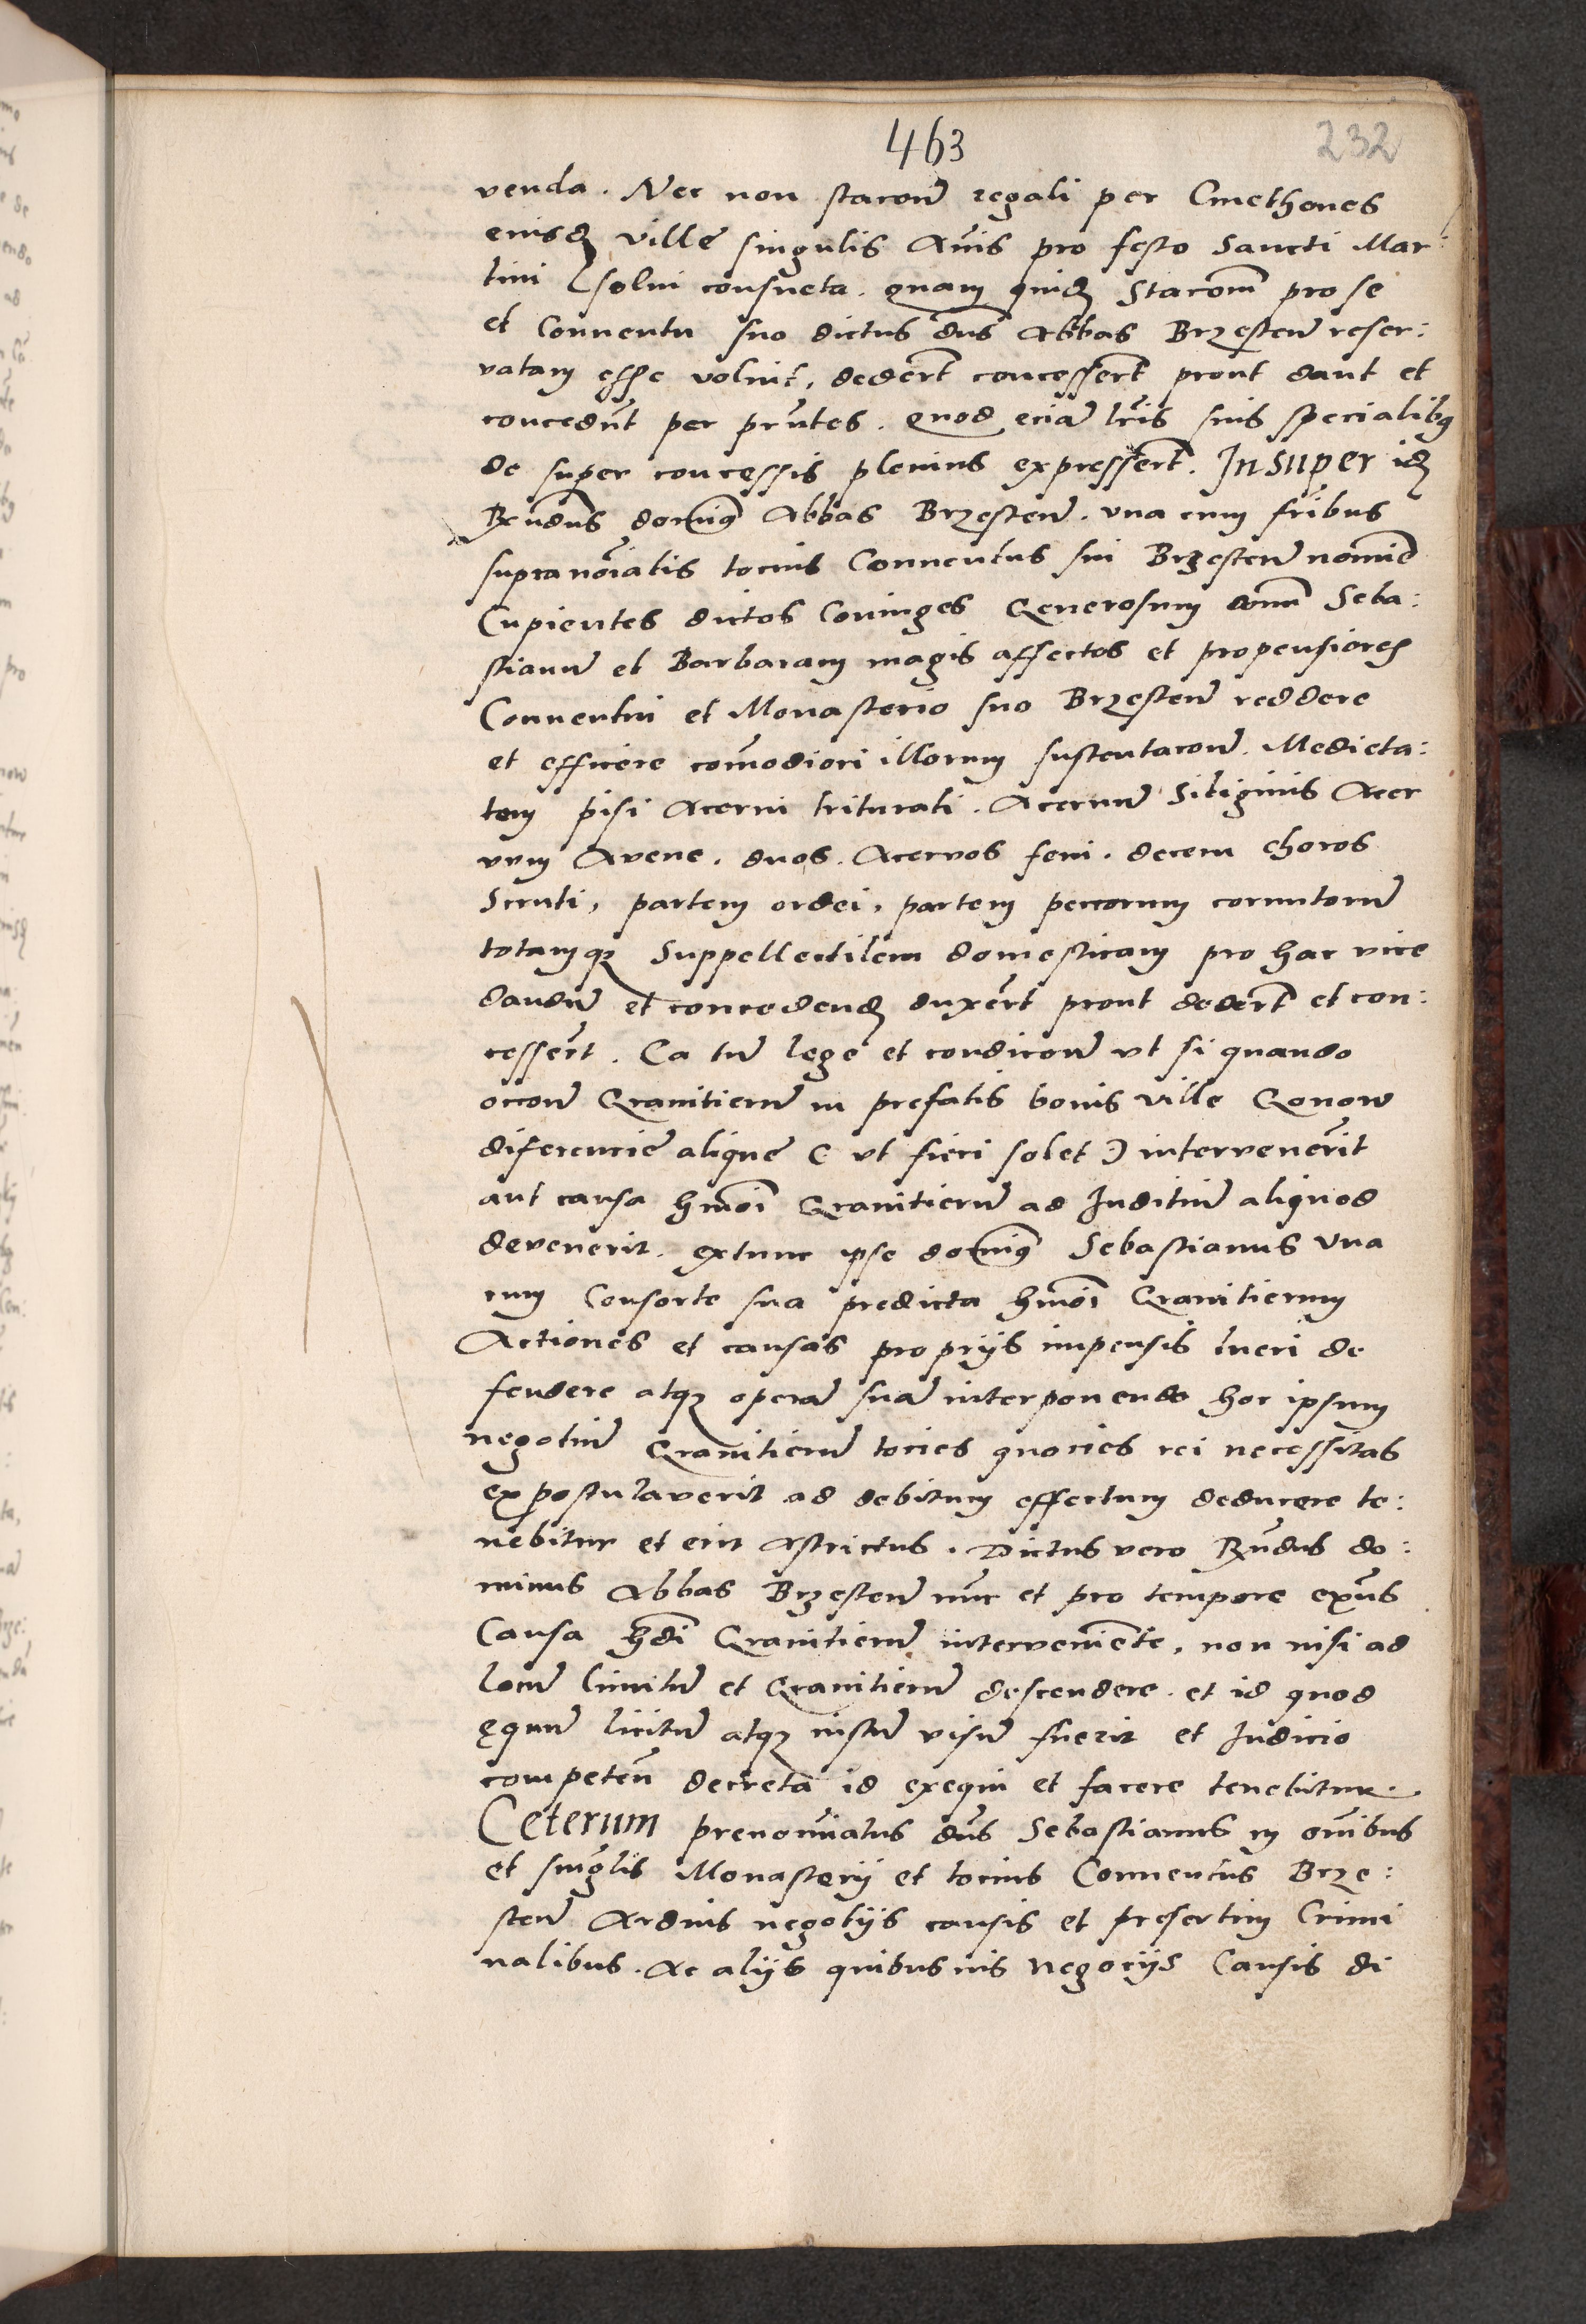 463
232
venda. Nec non stacōn̄ regali per Cmethones
eiusdꝫ ville singulis An̄is pro festo Sancti Mar:
tini solui consueta. quam quidꝫ Stacōm̄ pro se
et Conuentu suo dictus dn̄s Abbas Brzesten̄ reser:
vatam esse voluit, dedēr̄t concessēr̄t prout dant et
concedūt per pn̄tes. quod eciā lr̄is suis specialibꝫ
de super concessis plenius expressēr̄t. Insuper idꝫ
Rn̄dus dominꝰ Abbas Brzesten̄. vna cum fr̄ibus
supranōiatis tocius Conuentus sui Brzesten̄ nomīe
Cupientes dictos Coniuges Generosum dnm̄ Seba:
stianū et Barbaram magis affectos et propensiores
Conuentui et Monasterio suo Brzesten̄ reddere
et efficere com̄odiori illorum sustentacōn̄. Medieta:
tem pisi Acerui triturati. Acervū Siliginis Acer
vum Avene. duos. Acervos feni. decem choros
Scruti, partem ordei, partem peccorum cornutorū
totamqꝫ Suppellectilem domesticam pro hac vice
dandū et concedendꝫ duxēr̄t prout dedēr̄t et con:
cessēr̄t. Ea tn̄ lege et condicōn̄ vt si quando
occōn̄ Granitierū in prefatis bonis ville Gonow
diferencie alique ( vt fieri solet ) intervenērit
aut causa hm̄oi Granitierū ad Iuditiū aliquod
devenerit. extunc ipse dominꝰ Sebastianus Vna
cum Consorte sua predicta hm̄oi Granitierum
Actiones et causas proprijs impensis tueri de
fendere atqꝫ operā suā interponendo hoc ipsum
negotiū Granitierū tocies quocies rei necessitas
expostulaverit ad debitum effectum deducere te:
nebitur et erit Astrictus. Dictus vero Rn̄dus do:
minus Abbas Brzesten̄ nūc et pro tempore exn̄s
Causa hm̄oi Granitierū interveniēte, non nisi ad
locū limitū et Granitierū descendere. et id quod
ęquū licitū atqꝫ iustū visū fuerit et Iudicio
competen̄ decretā id exequi et facere tenebitur.
Ceterum prenom̄iatus dn̄s Sebastianus in om̄ibus
et singl̄is Monasterij et tocius Conuentus Brze:
sten̄ Arduis negotijs causis et presertim Crimi
nalibus. Ac alijs quibusuis Negocijs Causis di